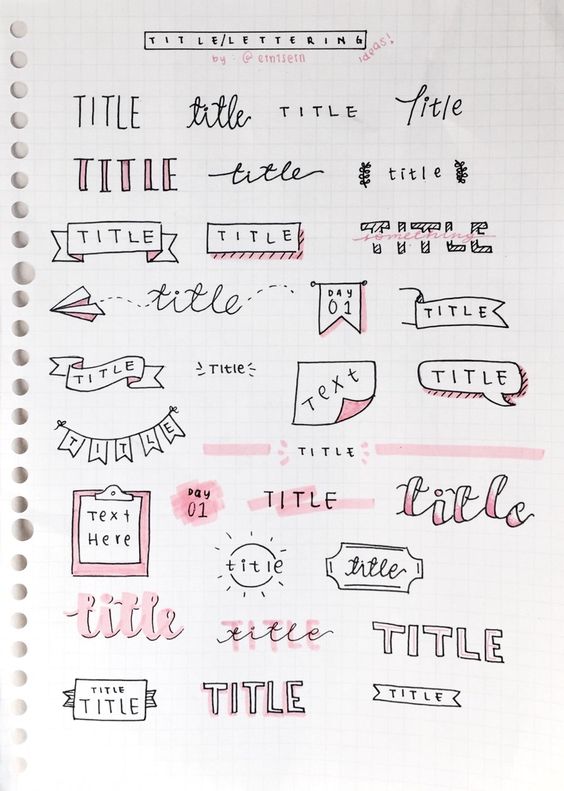 TITLE/LETTERING
ideas!
by · @emtsem
TITLE title TITLE Title
TITLE title title
TITLE TITLE TITLE something
title DAY 01 TITLE
TITLE Title Text TITLE
TITLE
TITLE
Text Here DAY 01 TITLE title
title title
title title TITLE
TITLE TITLE TITLE TITLE